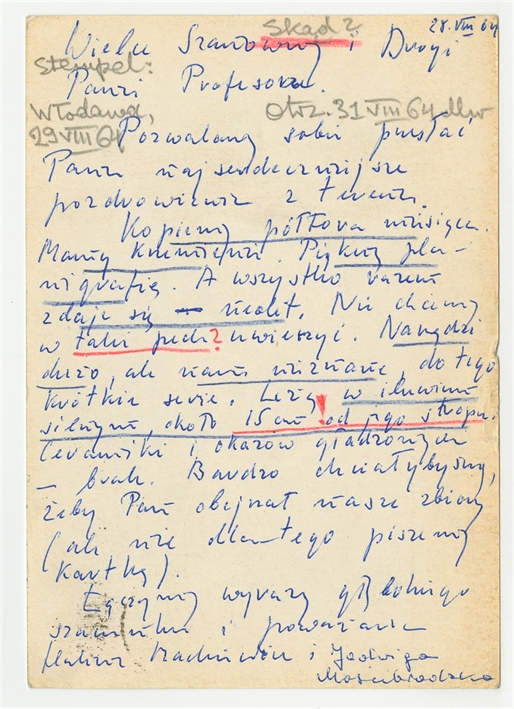 28.VIII 64
Skąd?
Wielce Szanowny i Drogi
Stempel:
Panie Profesorze.
Włodawa,
29 VIII 64
Otrz. 31 VIII 64
Pozwalamy sobie przesłać
Panu najserdeczniejsze
pozdrowienia z terenu.
Kopiemy półtora miesiąca.
Mamy krzemienie. Piękną pla-
nigrafię. A wszystko razem
zdaje się — neolit. Nie chcemy
w taki pech? uwierzyć. Narzędzi
dużo, ale nam nieznane, do tego
krótkie serie. Leżą w iluwium
silnym, około 15 cm! od jego stropu.
Ceramiki i okazów gładzonych
— brak. Bardzo chciałybyśmy,
żeby Pan obejrzał nasze zbiory
(ale nie dlatego piszemy
kartkę).
Łączymy wyrazy głębokiego
szacunku i poważania
Halina i Jadwiga